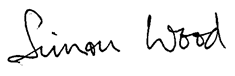 Simon Wood